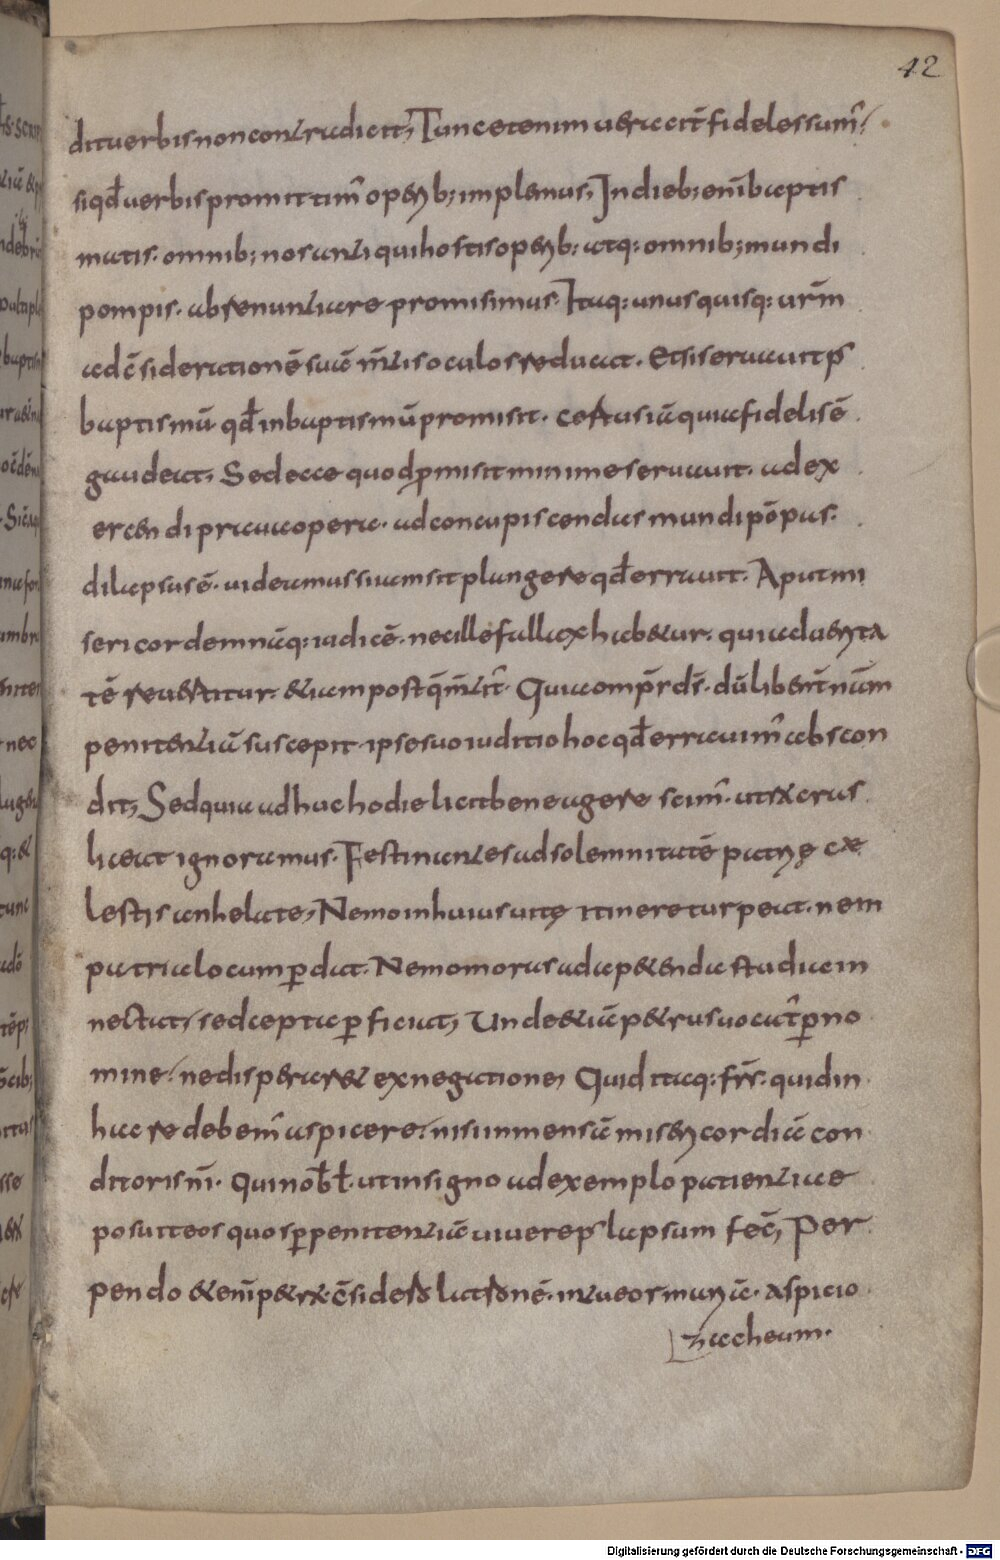 42
dit verbis non contradicit; Tunc etenim veraciť fideles sum᷒
si qđ verbis promittim᷒ operib; implemus; In dieb; enī baptis
matis · omnib; nos antiqui hostis operib; atq: omnib; mundi
pompis · abrenuntiare promisimus · Itaq: unusquisq: urm̄
ad c̄siderationē suā m̄tis oculos reducat · Et si servavit p᷒
baptismū qđ in baptismū promisit · certus iā quia fidelis ē
gaudeat; Sed ecce quod pmisit minime servavit · ad ex
ercendi prava opera · ad concupiscendas mundi pōpas ·
dilapsus ē · videamus si iam scit plangere qđ erravit · Aput mi
sericordem nāq: iudicē · nec ille fallax habetur · qui ad verita
tē revertitur · etiam postq̄ m̄tit · Quia omp̄r ds̄ · dū libent̄ nr̄am
penitentiā suscepit · ipse suo iuditio hoc qđ erravim᷒ abscon
dit; Sed quia adhuc hodie licit bene agere scim᷒ · utrū cras
liceat ignoramus · Festinantes ad solemnitatē patrię cę
lestis anhelate; Nemo in huius vitę itinere turpeat · ne in
patria locum pdat · Nemo moras ad apetenda studia in
nectat / sed cepta pficiat; Unde et iā petrus vocat᷒ p no
mine / ne disperaret ex negatione; Quid itaq: frs̄ · quid in
hac re debem᷒ aspicere / nisi inmensā misericordiā con
ditoris nr̄i · Qui nob̄ vł ut in signo ad exemplo patientiae
posuit eos quos p penitentiā vivere p᷒ lapsum fec̄; Per
pendo etenī petrū · c̄sidero latronē · intueor mariā · aspicio
zacheum ·
Digitalisierung gefördert durch die Deutsche Forschungsgemeinschaft - DFG